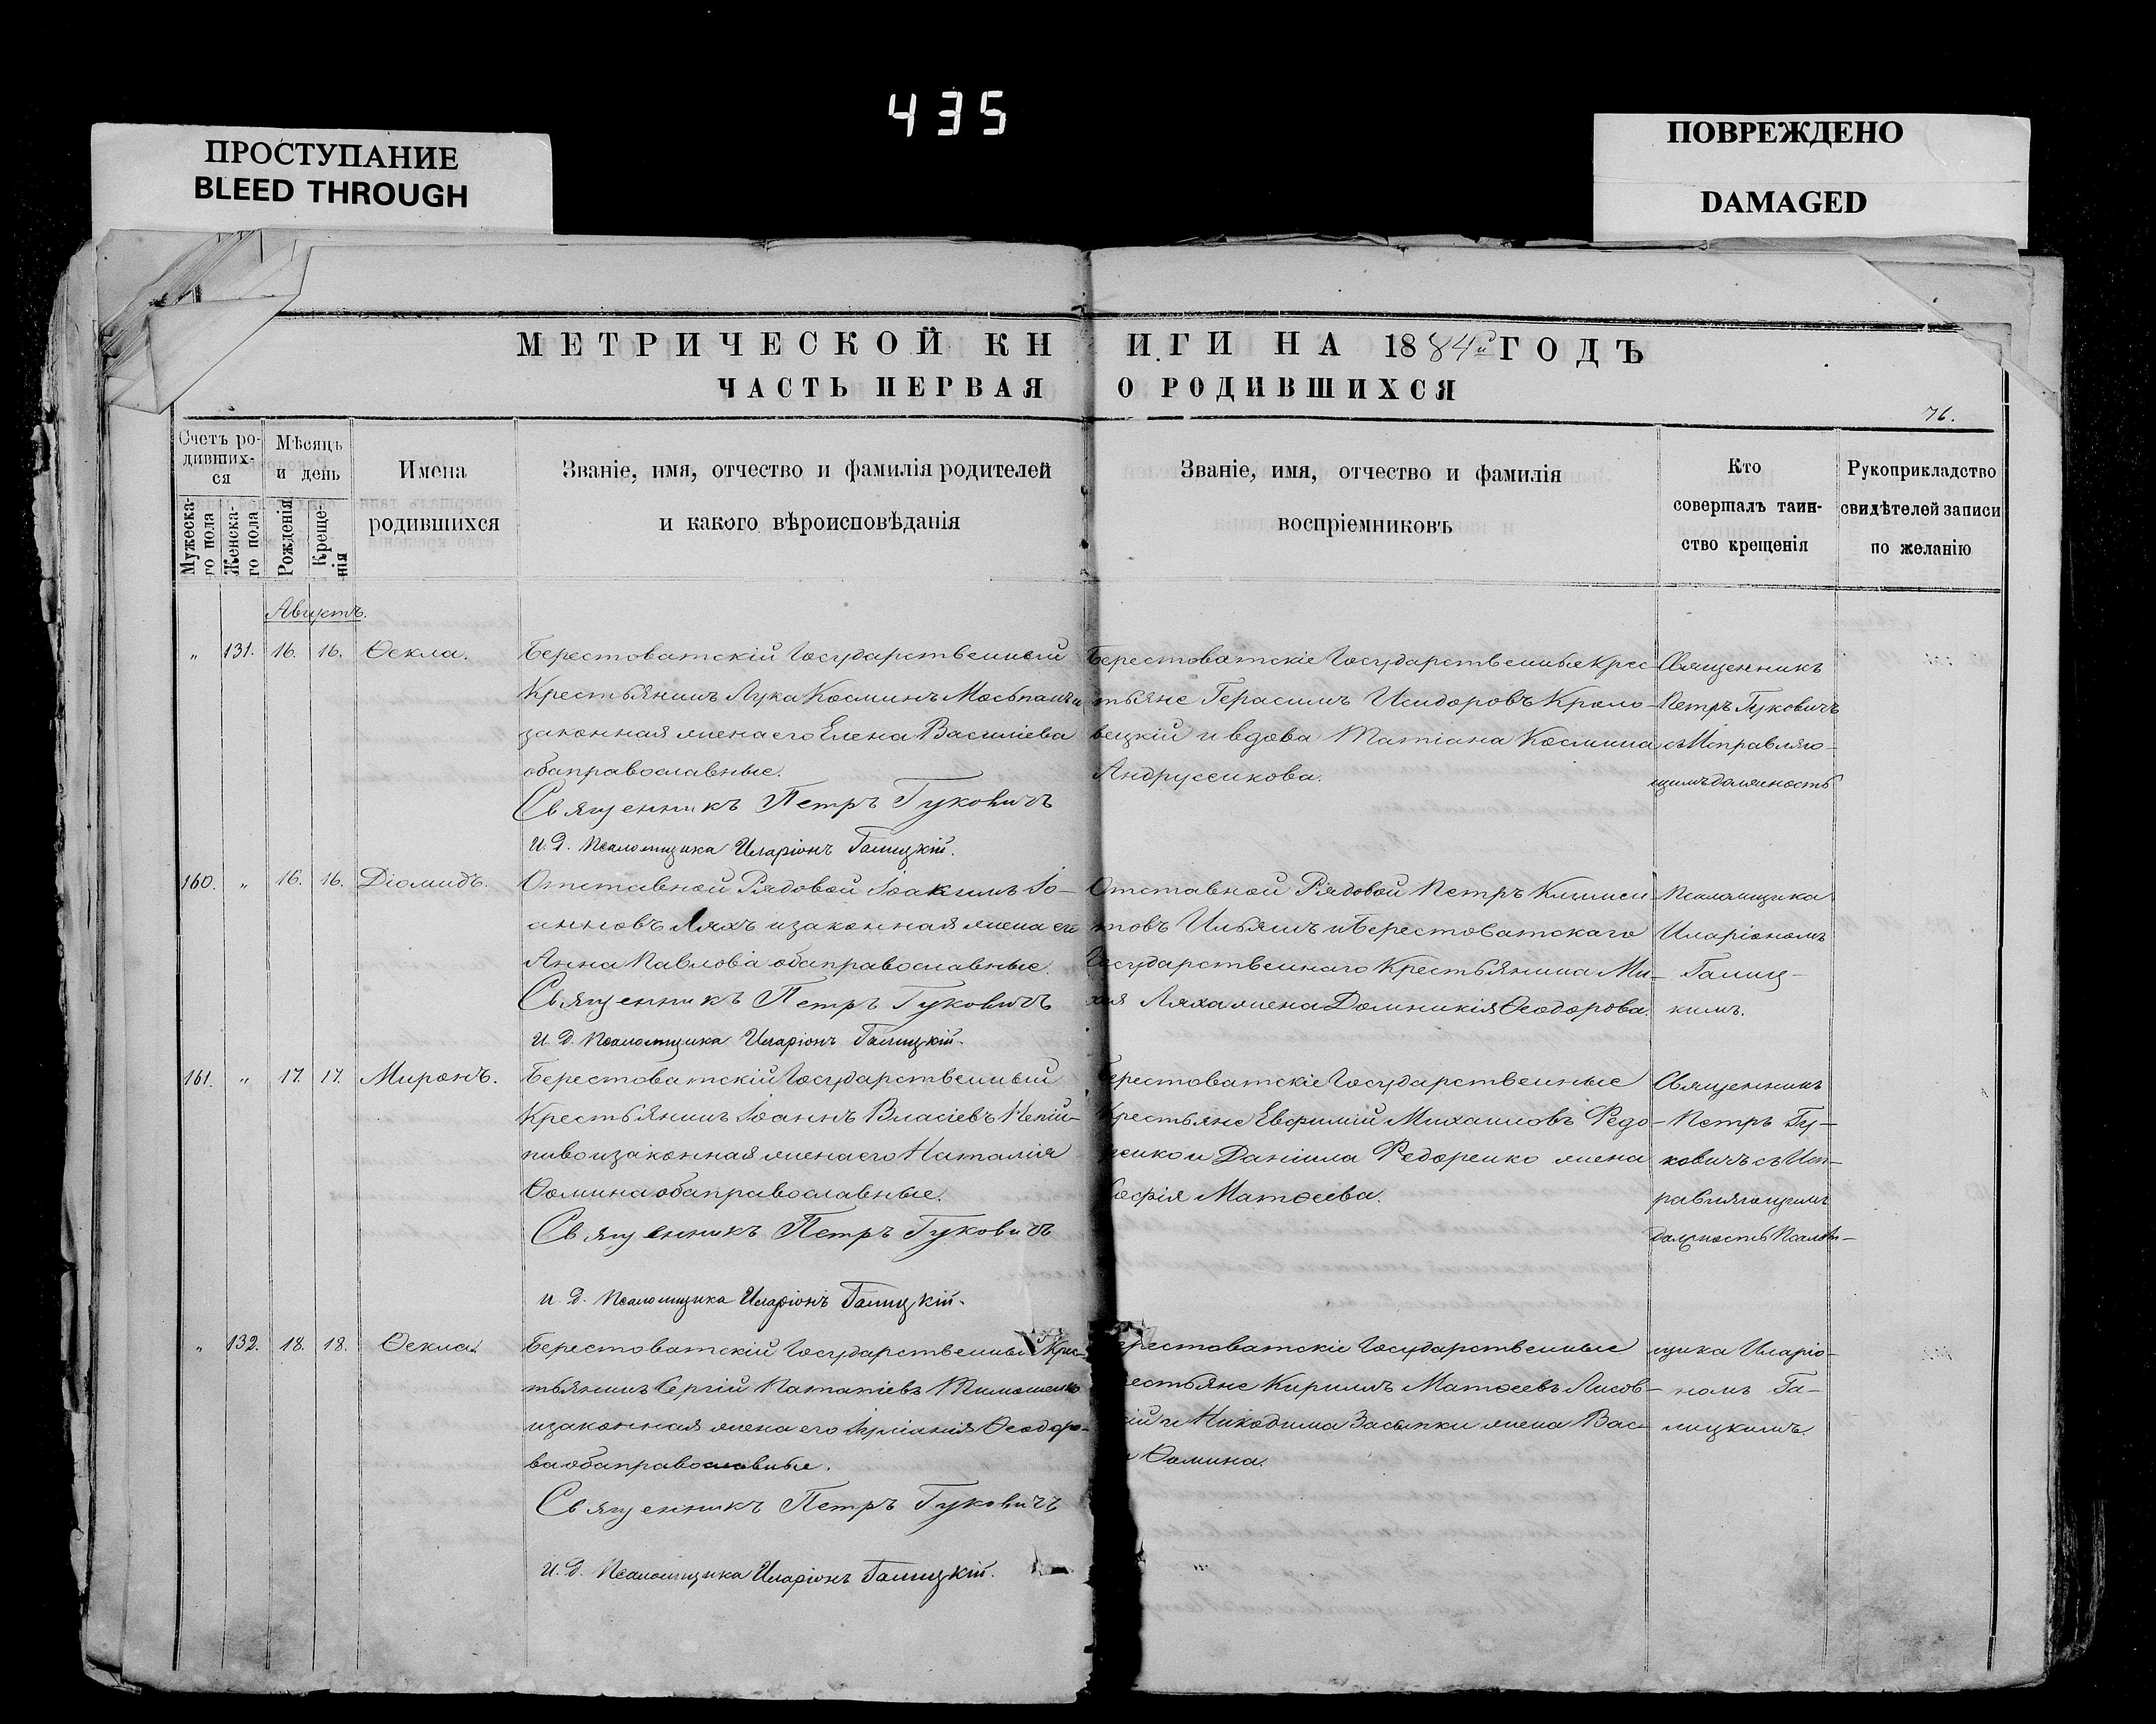 435
ПРОСТУПАНИЕ
BLEED THROUGH
ПОВРЕЖДЕНО
DAMAGED
МЕТРИЧЕСКОЙ КНИГИ НА 1884й ГОДЪ
ЧАСТЬ ПЕРВАЯ О РОДИВШИХСЯ
76.
Счетъ ро-
дивших-
ся
Мужеска-
го пола
Женска-
го пола
Мѣсяцъ
и день
Рожденія
Креще-
нія
Имена
родившихся
Званіе, имя, отчество и фамилія родителей
и какого вѣроисповѣданія
Званіе, имя, отчество и фамилія
воспріемниковъ
Кто
совершалъ таин-
ство крещенія
Рукоприкладство
свидѣтелей записи
по желанію
Августъ.
„ 131. 16. 16. Ѳекла.
Берестоватскій Государственный
Крестьянинъ Лука Косминъ Мосьпанъ и
законная жена его Елена Василіева
оба православные.
Священникъ Петръ Гуковичъ
И. д. Псаломщика Иларіонъ Галицкій.
Берестоватскіе Государственные Крес-
тьяне Герасимъ Исидоровъ Кроло-
вецкій и вдова Татіана Космина
Андрусенкова.
Священникъ
Петръ Гуковичъ
съ Исправляю-
щимъ должность
160. „ 16. 16. Діомидъ.
Отставной Рядовой Іоакимъ Іо-
анновъ Ляхъ и законная жена его
Анна Павлова оба православные.
Священникъ Петръ Гуковичъ
И. д. Псаломщика Иларіонъ Галицкій.
Отставной Рядовой Петръ Климен-
товъ Ильяшъ и Берестоватскаго
Государственнаго Крестьянина Ми-
Ляха жена Домникія Ѳеодорова.
Псаломщика
Иларіономъ
Галиц-
кимъ.
161. „ 17. 17. Миронъ.
Берестоватскій Государственный
Крестьянинъ Іоаннъ Власіевъ Непій-
пиво и законная жена его Наталія
Ѳомина оба православные.
Священникъ Петръ Гуковичъ
И. д. Псаломщика Иларіонъ Галицкій.
Берестоватскіе Государственные
Крестьяне Евфимій Михаиловъ Редо-
ренко и Даніила Редоренко жена
Софія Матѳеева.
Священникъ
Петръ Гу-
ковичъ съ Исп-
равляющимъ
должность Псалом-
„ 132. 18. 18. Ѳекла.
Берестоватскій Государственный Крес-
тьянинъ Сергій Ипатіевъ Тимошенко
и законная жена его Ѳеодоро-
ва оба православные.
Священникъ Петръ Гуковичъ
И. д. Псаломщика Иларіонъ Галицкій.
ерестоватскіе Государственные
естьяне Кириллъ Матѳеевъ Лисов-
кій и Никодима Засыпки жена Вас
Ѳомина.
щика Иларіо-
номъ Га-
лицкимъ.